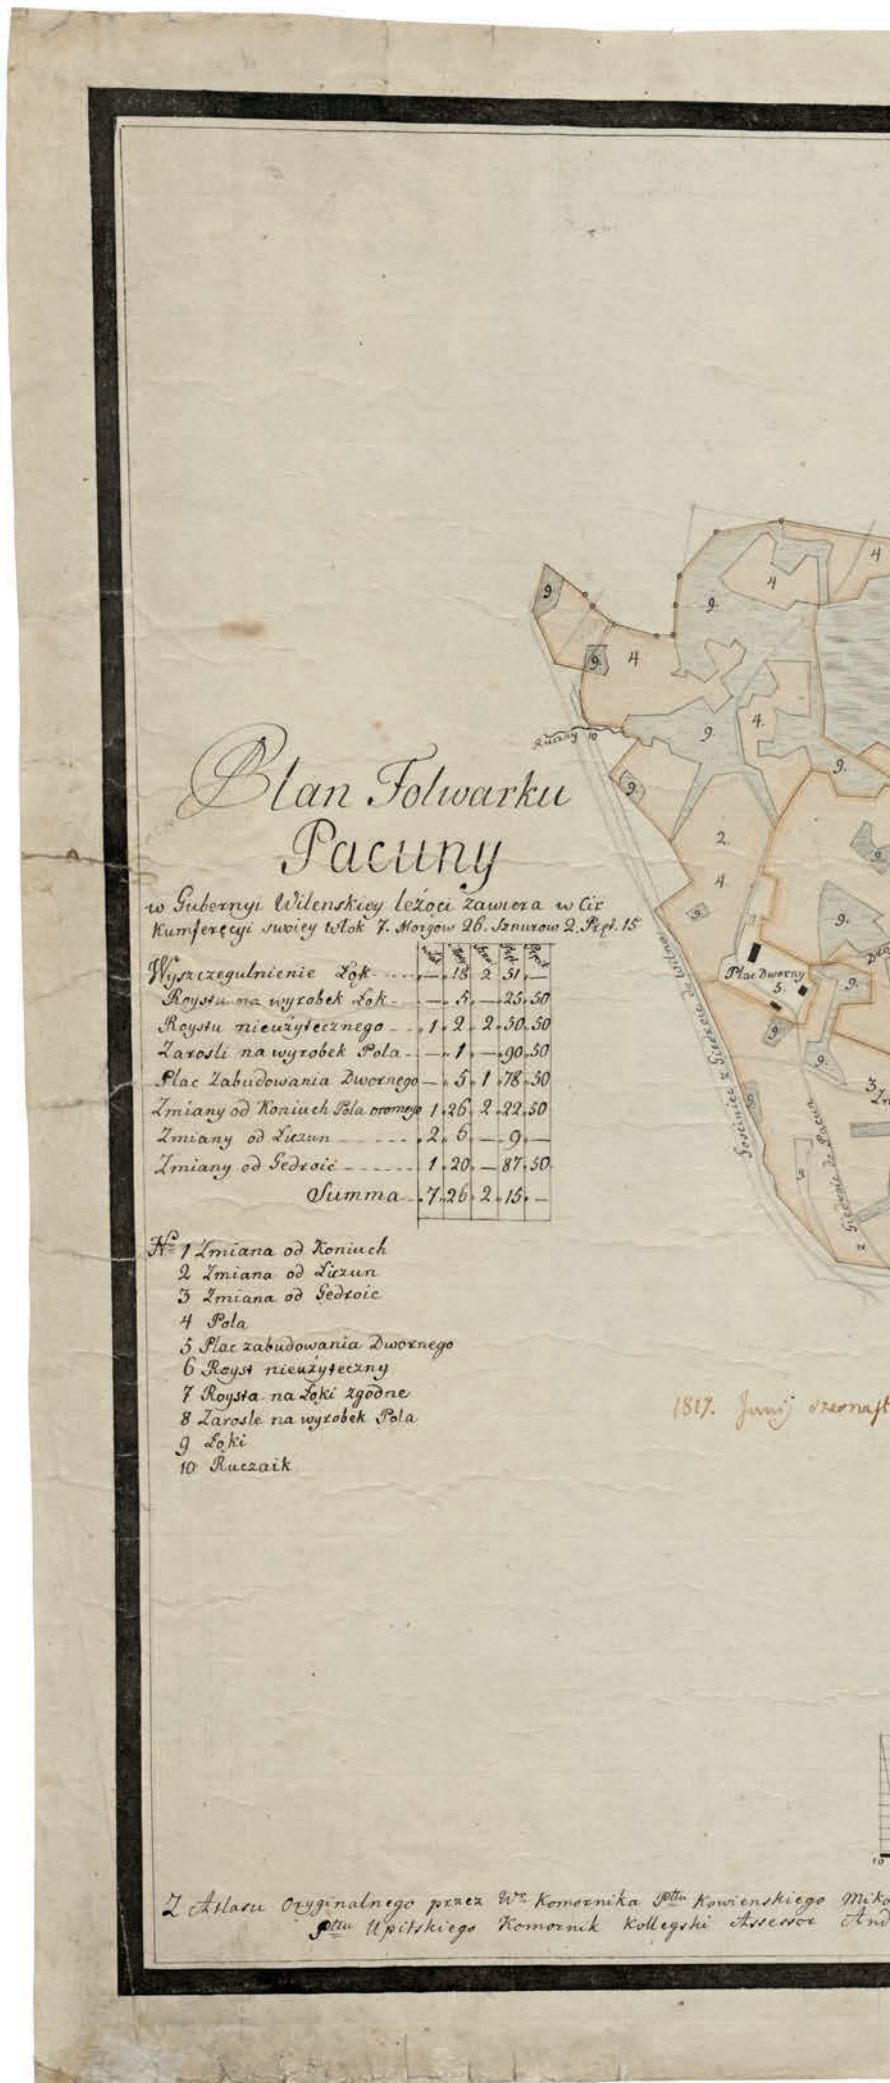 Plan Folwarku
Pacuny
w Gubernyi Wilenskiey leżąci zawiera w Cir
kumferęcyi swoiey włok 7. Morgow 26. Sznurow 2. Pręt. 15
Wyszczegulnienie Łąk — 18 2 51 —
Roystu na wyrobek Łąk — 5 — 25 50
Roystu nieużytecznego 1 2 2 50 50
Zarosli na wyrobek Pola — 1 — 90 50
Plac Zabudowania Dwornego — 5 1 78 50
Zmiany od Koniuch Pola oromego 1 26 2 22 50
Zmiany od Liczun 2 6 — 9 —
Zmiany od Gedroić 1 20 — 87 50
Summa 7 26 2 15 —
No 1 Zmiana od Koniuch
2 Zmiana od Liczun
3 Zmiana od Gedroic
4 Pola
5 Plac zabudowania Dwornego
6 Royst nieużyteczny
7 Roysta na Łąki zgodne
8 Zarosle na wyrobek Pola
9 Łąki
10 Ruczaik
9
4
4
9.
9.
4
4.
9.
9.
9.
2.
4.
9
9
9.
Plac Dworny
5.
9.
9
9.
3
Gościniec z Giedroic do Wilna
z Giedroic do Pacun
10
1817. Junij
10
Z Atlasu Oryginalnego przez Wo Komornika Pttu Kowienskiego Miko
Pttu Upitskiego Komornik Kollegski Assessor And